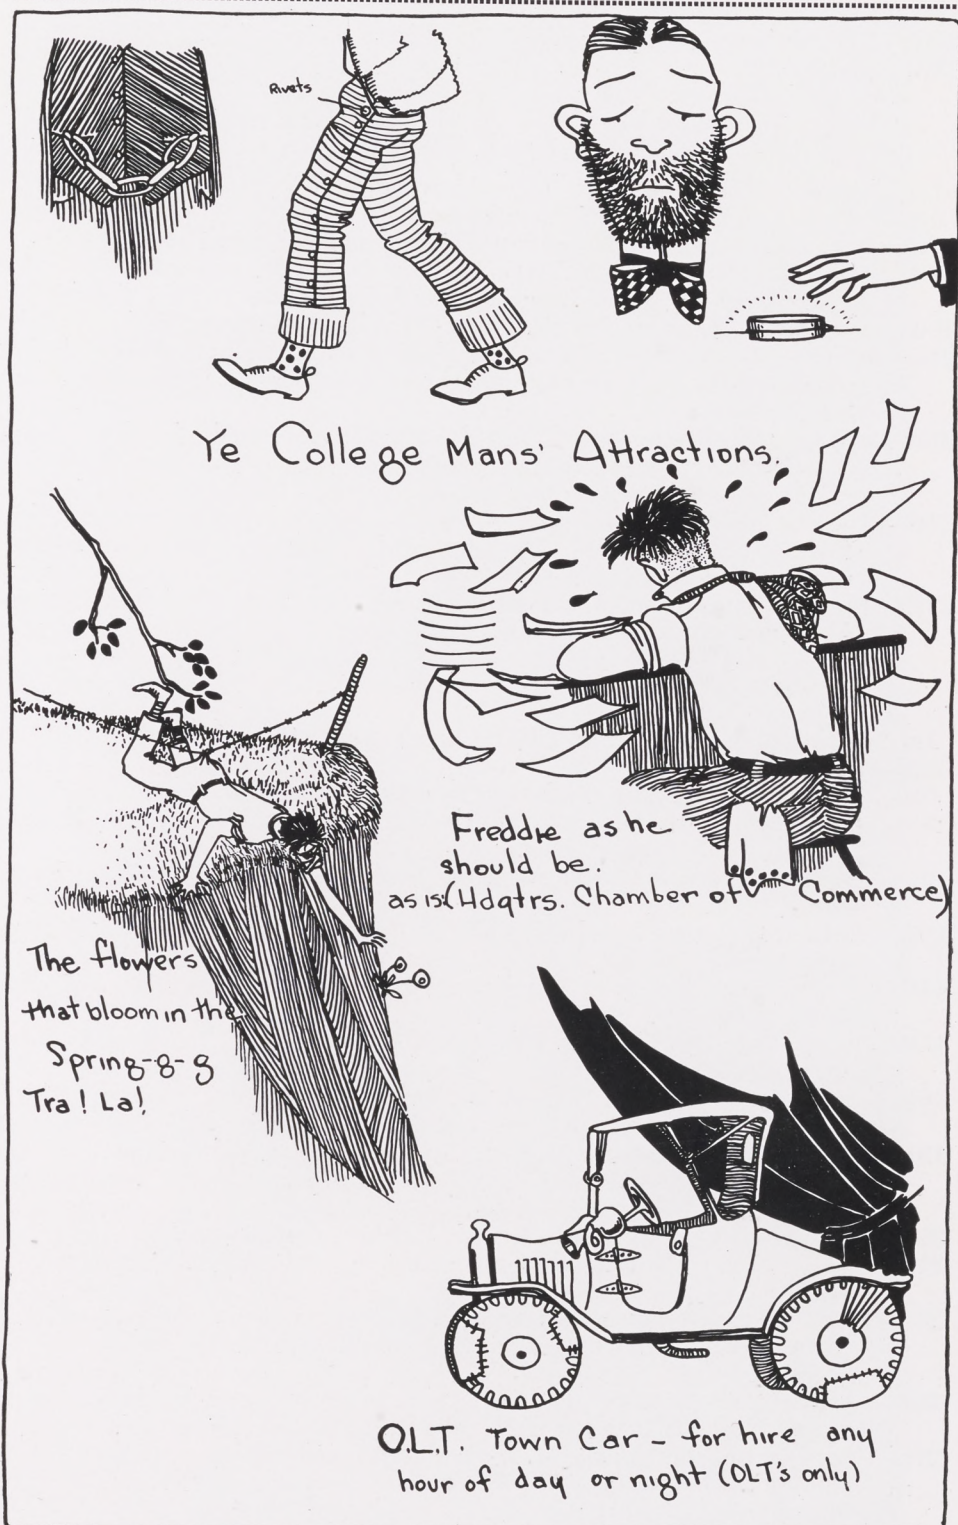 Rivets
Ye College Mans' Attractions.
Freddie as he
should be.
as is:(Hdqtrs. Chamber of Commerce)
The flowers
that bloom in the
Spring-g-g
Tra! La!
O.L.T. Town Car - for hire any
hour of day or night (OLT's only)